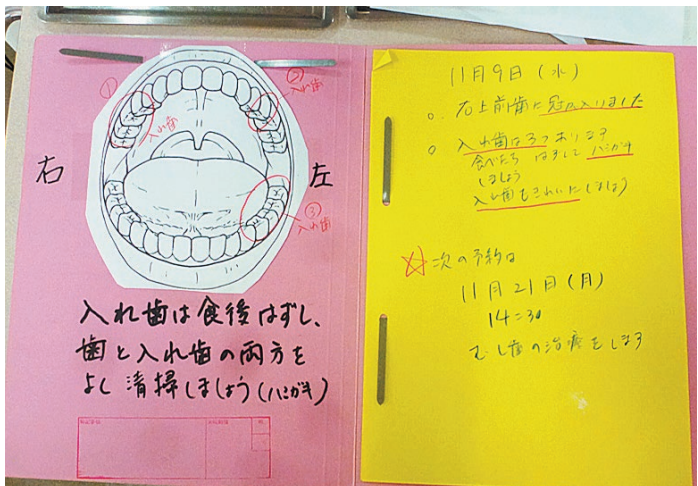 ①
入れ歯
②
入れ歯
右
左
③
入れ歯
入れ歯は食後はずし、
歯と入れ歯の両方を
よし清掃しましょう(ハミガキ)
11月9日(水)
右上前歯に冠が入りました
入れ歯は3つあります
食べたら はずして ハミガキ
しましょう
入れ歯もきれいにしましょう
次の予約は
11月21日(月)
14:30
むし歯の治療をします